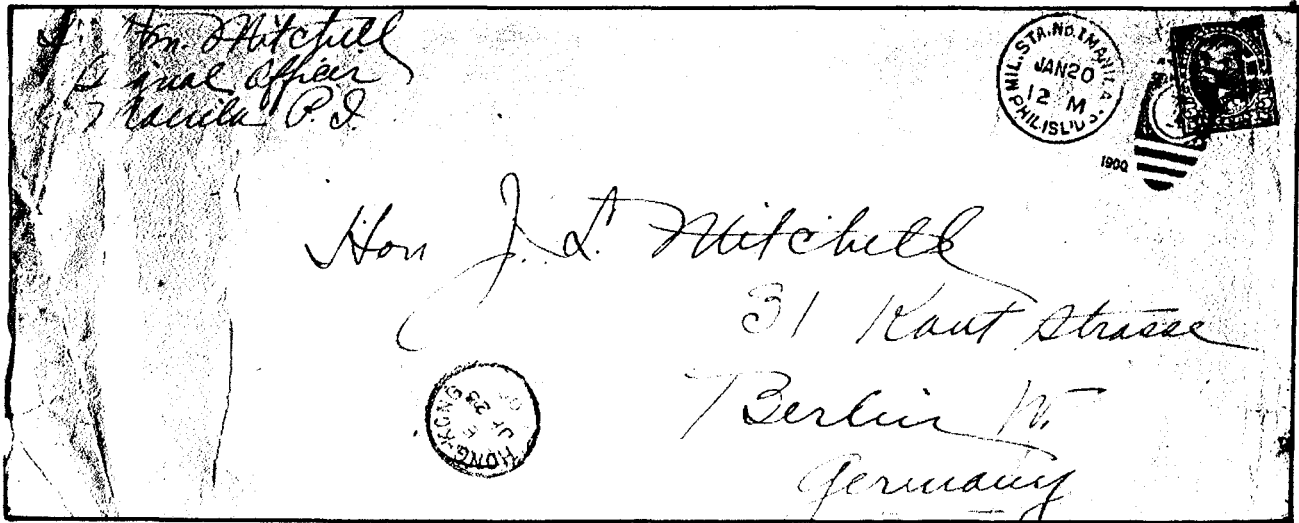 Wm. Mitchell
Signal Officer
Manila P.I.
MIL. STA. NO. 1 MANILA
JAN 20
12 M
PHIL ISL'DS
1900
Hon J. L. Mitchell
31 Kant Strasse
Berlin W.
Germany
HONG-KONG
JA 28